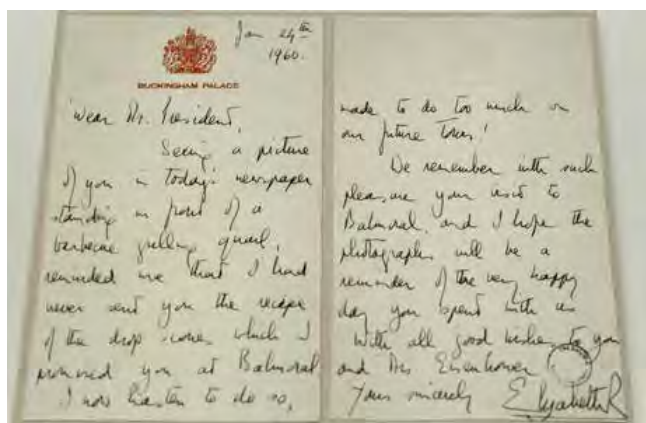 Jan 24th
1960.
BUCKINGHAM PALACE
Dear Mr. President,
Seeing a picture
of you in today's newspaper
standing in front of a
barbecue grilling quail,
reminded me that I had
never sent you the recipe
of the drop scones which I
promised you at Balmoral
I now hasten to do so,
made to do too much on
our future tours!
We remember with such
pleasure your visit to
Balmoral, and I hope the
photographs will be a
reminder of the very happy
day you spent with us
With all good wishes to you
and Mrs Eisenhower
Yours sincerely
Elizabeth R